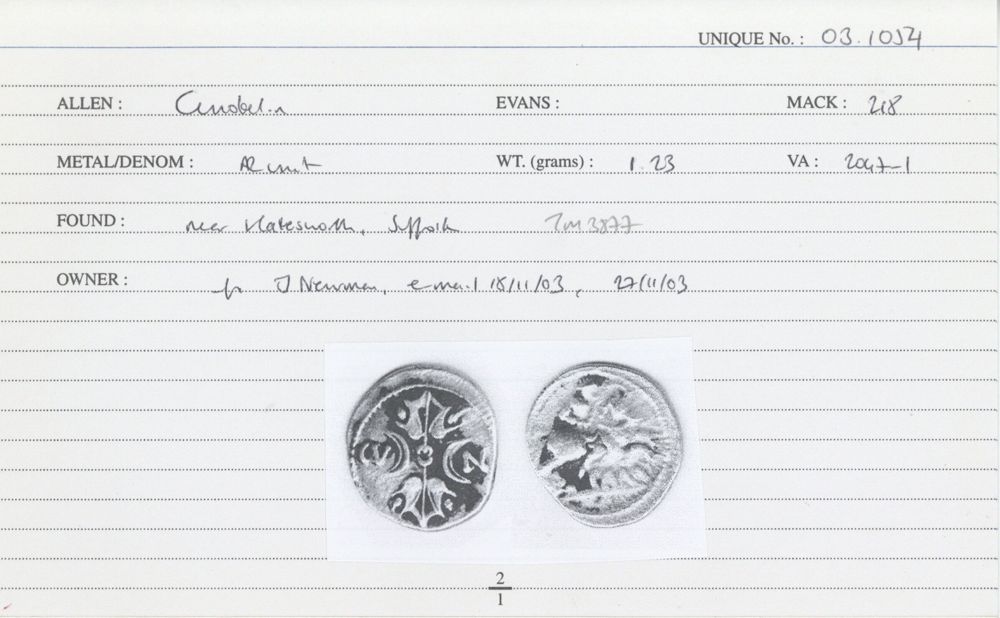 UNIQUE No. : 03.1054
ALLEN : Cunobelin EVANS : MACK : 218
METAL/DENOM : AR unit WT. (grams) : 1.23 VA : 2047-1
FOUND : near Suffolk TM3877
OWNER : J Newman, e-mail 18/11/03, 27/11/03
2
1